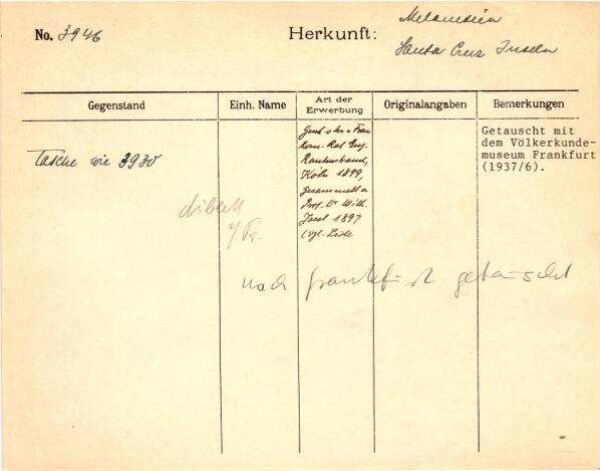 No. 3946
Herkunft:
Melanesien
Santa Cruz Inseln
Gegenstand
Einh. Name
Art der Erwerbung
Originalangaben
Bemerkungen
Tasche wie 3930
Gesch. v. Hrn. u. Frau
Kom. Rat Eug.
Rautenstrauch,
Köln 1899,
gesammelt v.
Prof. Dr Wilh.
Joest 1897
(vgl. Liste
Getauscht mit
dem Völkerkunde-
museum Frankfurt
(1937/6).
nach Frankfurt getauscht